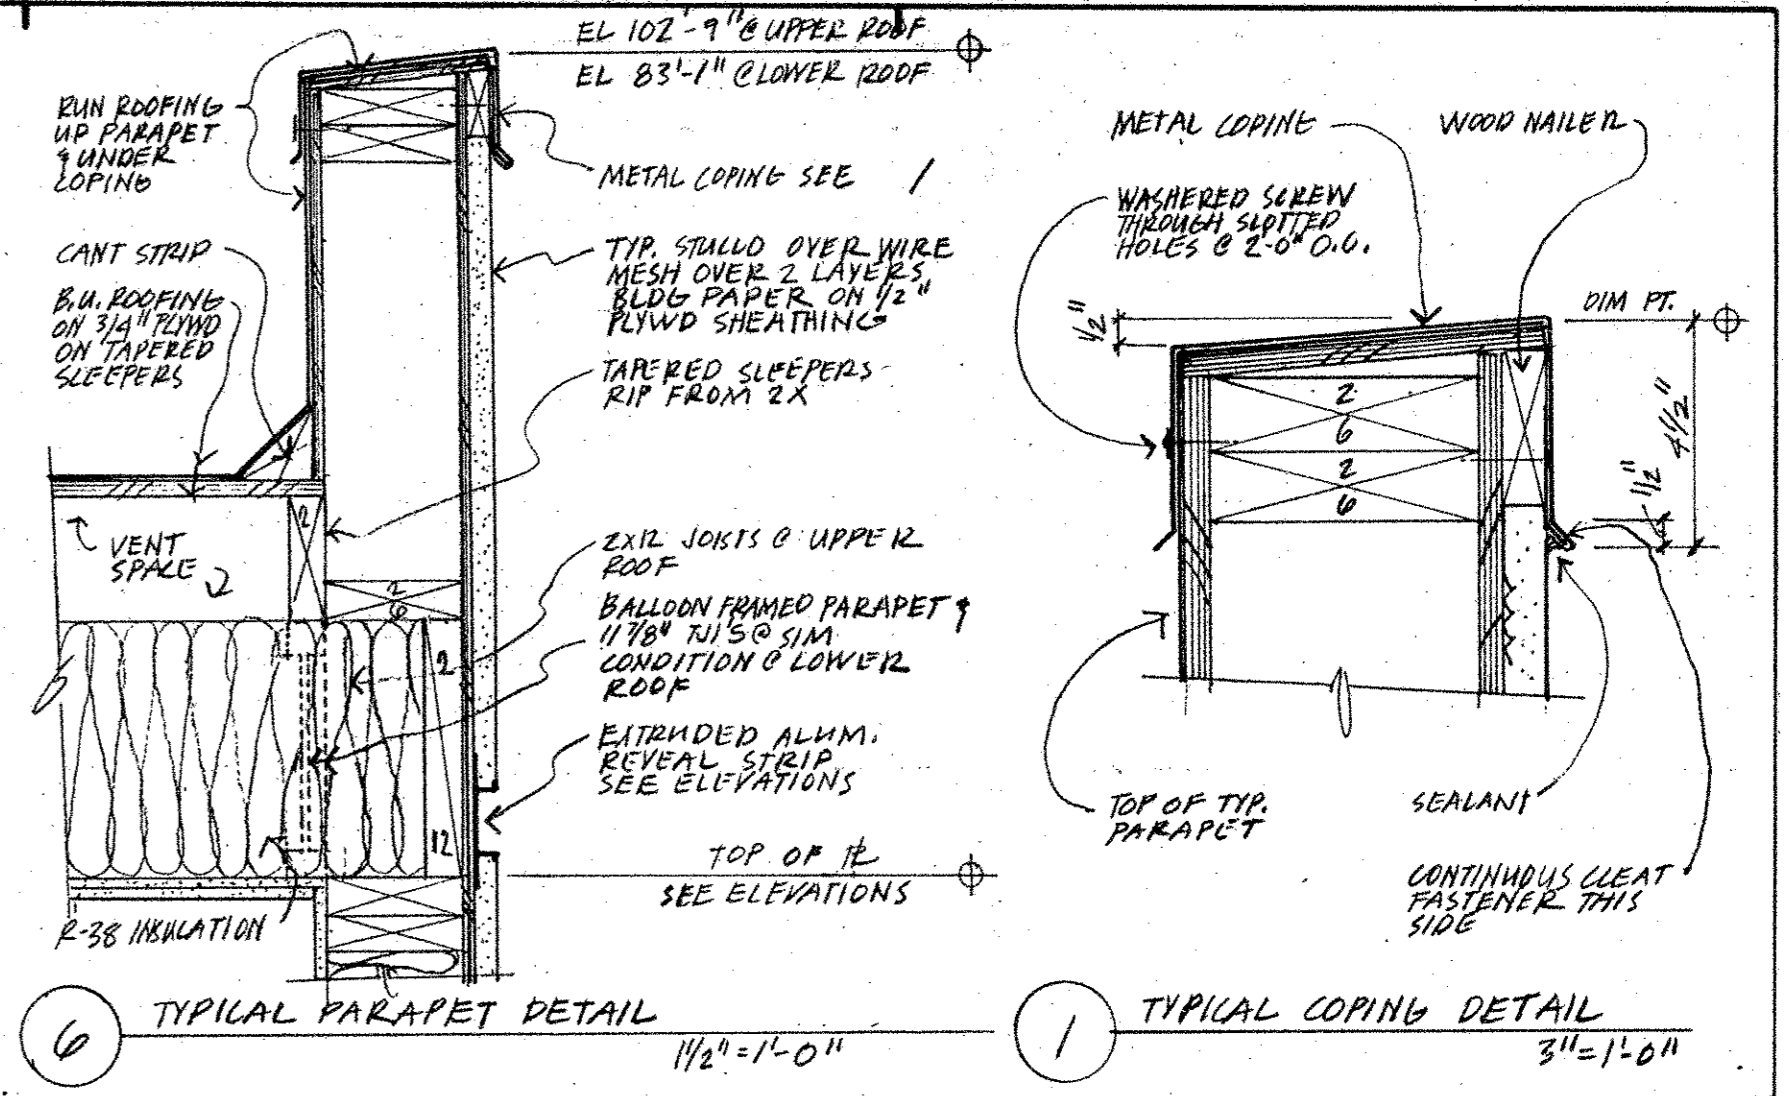 EL 102'-9" @ UPPER ROOF
EL 83'-1" @ LOWER ROOF
RUN ROOFING
UP PARAPET
& UNDER
COPING
METAL COPING SEE 1
CANT STRIP
TYP. STUCCO OVER WIRE
MESH OVER 2 LAYERS
BLDG PAPER ON 1/2"
PLYWD SHEATHING
B.U. ROOFING
ON 3/4" PLYWD
ON TAPERED
SLEEPERS
TAPERED SLEEPERS
RIP FROM 2X
2
VENT
SPACE
2
6
2X12 JOISTS @ UPPER
ROOF
BALLOON FRAMED PARAPET &
11 7/8" TJI'S @ SIM
CONDITION @ LOWER
ROOF
2
12
EXTRUDED ALUM.
REVEAL STRIP
SEE ELEVATIONS
TOP OF PL
SEE ELEVATIONS
R-38 INSULATION
6
TYPICAL PARAPET DETAIL
1 1/2" = 1'-0"
METAL COPING
WOOD NAILER
WASHERED SCREW
THROUGH SLOTTED
HOLES @ 2-0" O.C.
1/2"
DIM PT.
2
6
2
6
4 1/2"
1/2"
TOP OF TYP.
PARAPET
SEALANT
CONTINUOUS CLEAT
FASTENER THIS
SIDE
1
TYPICAL COPING DETAIL
3" = 1'-0"